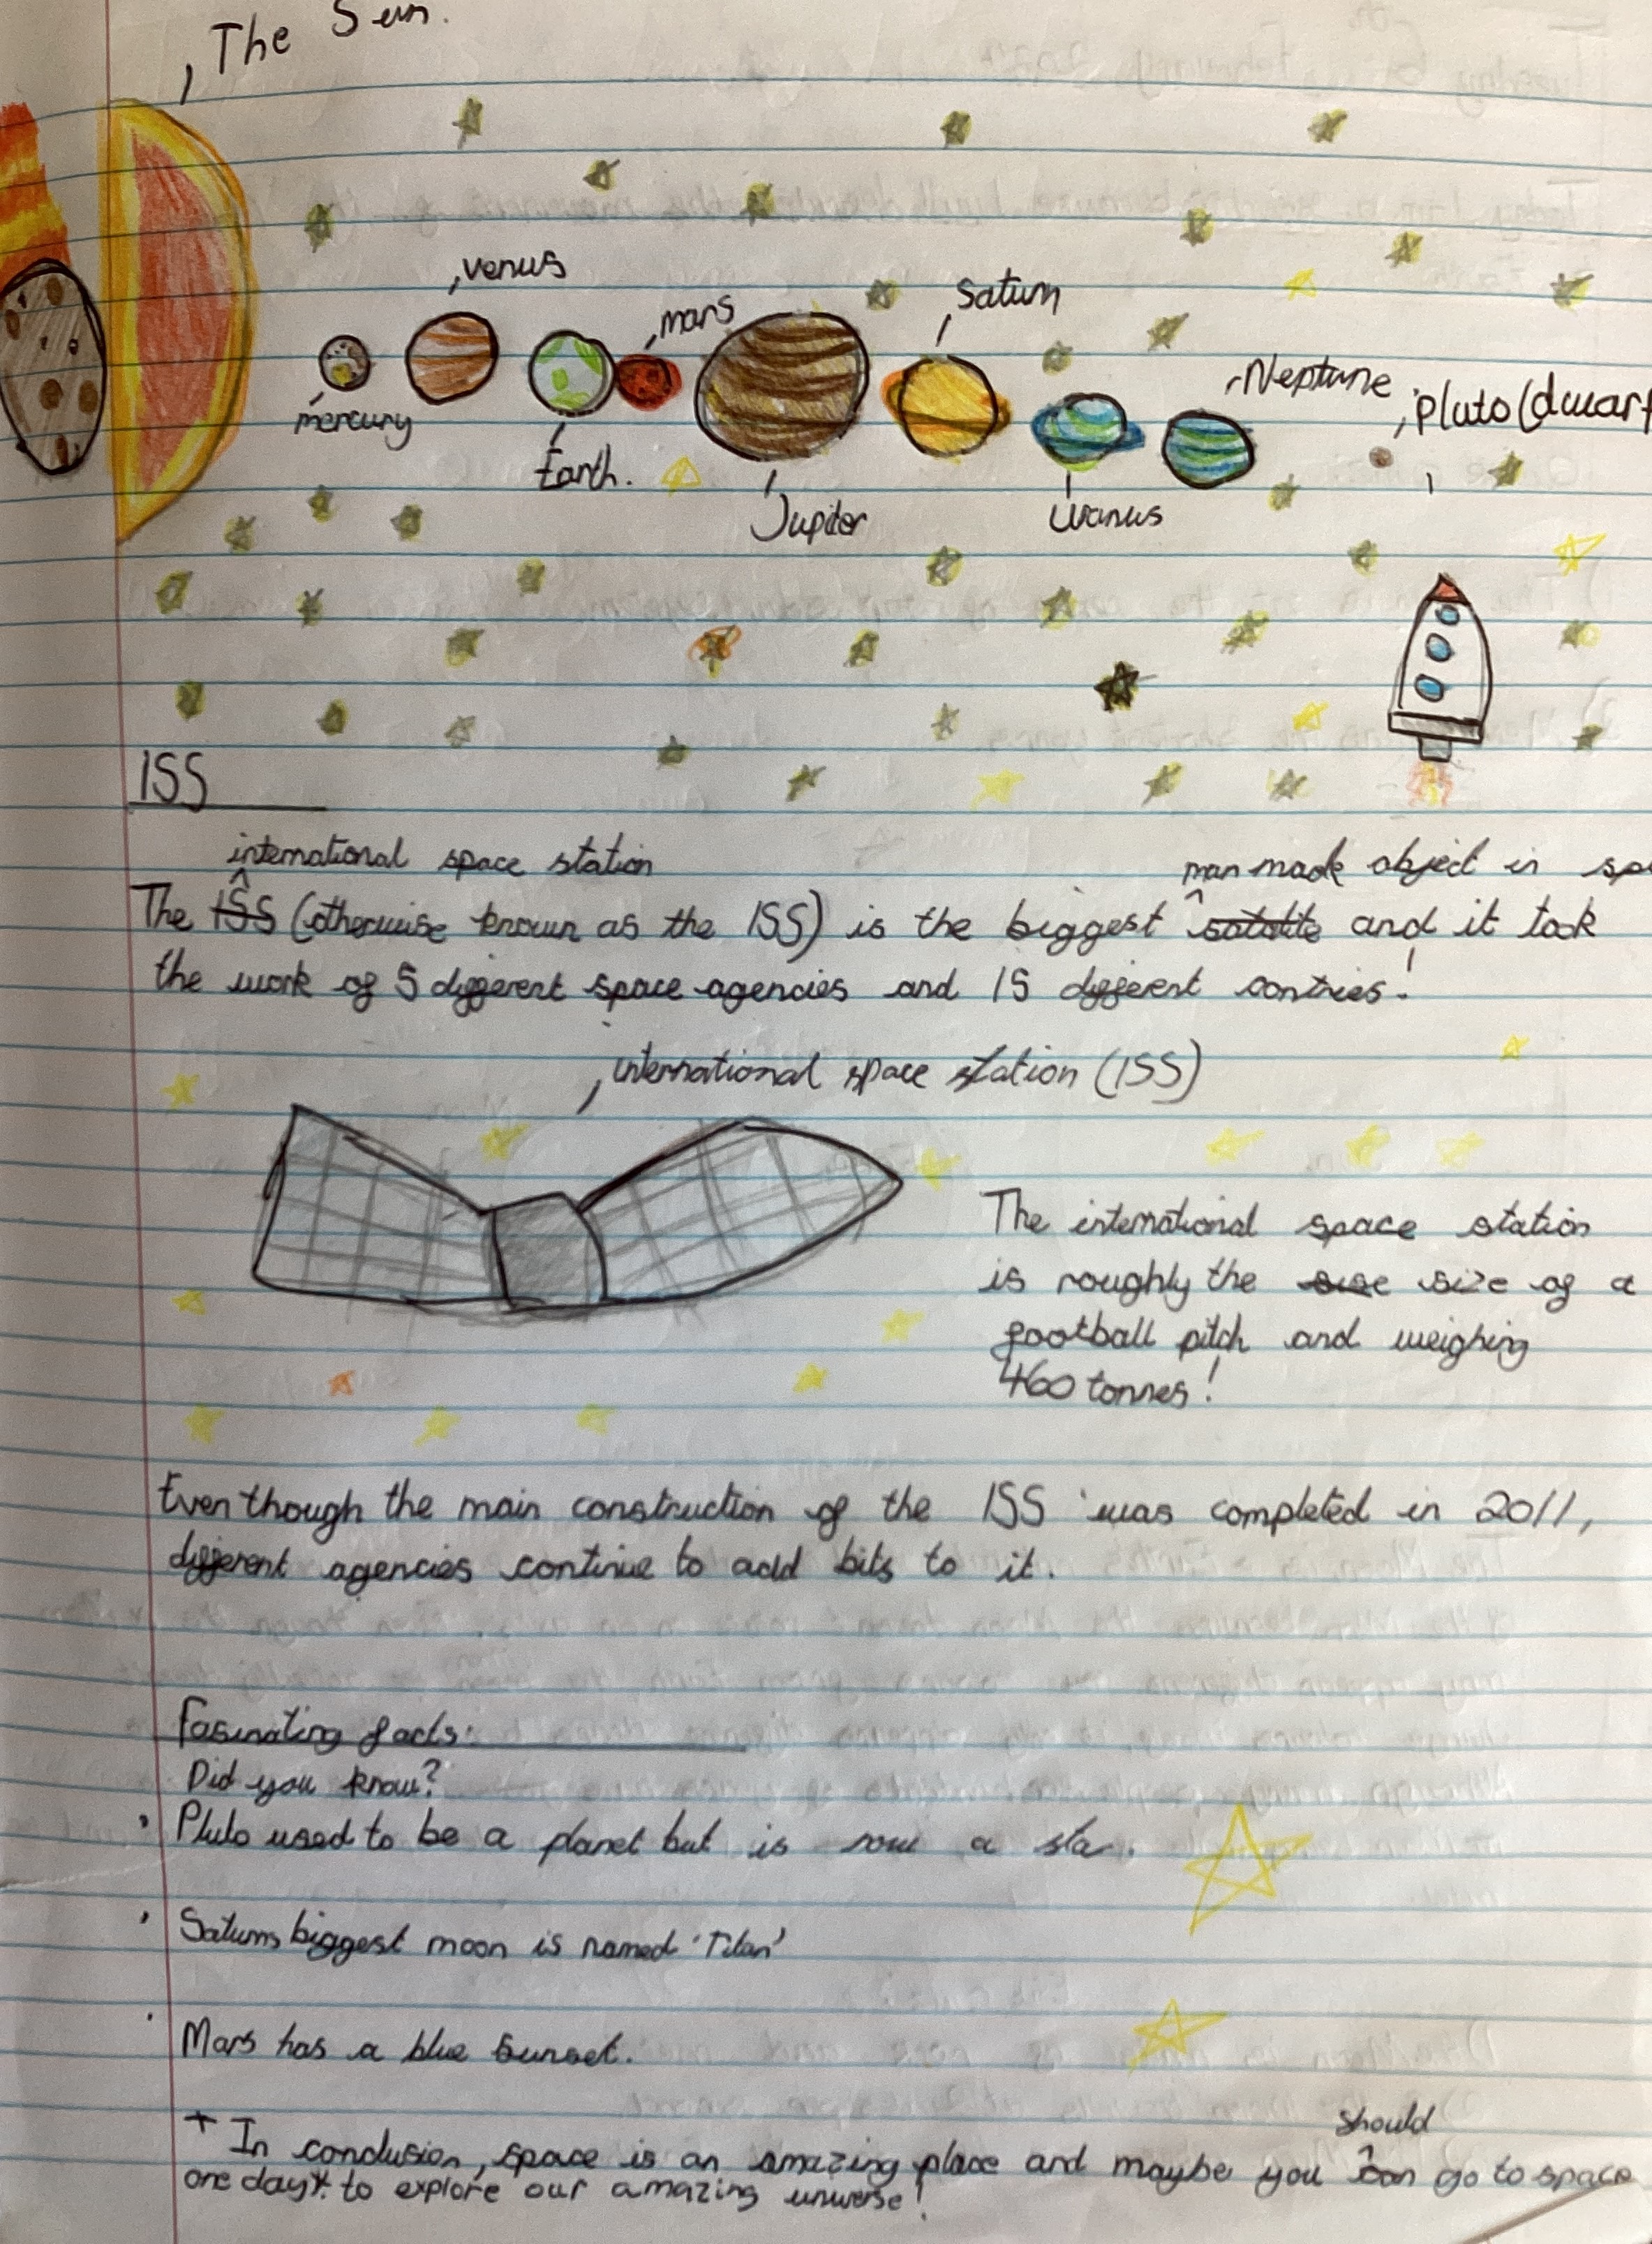 The Sun.
venus
mars
Saturn
Neptune
pluto (dwarf
mercury
Earth.
Jupiter
Uranus
ISS
international space station
man made object in
The ISS (otherwise known as the ISS) is the biggest satalite and it took
the work of 5 different space agencies and 15 different contries!
international space station (ISS)
The international space station
is roughly the sise size of a
football pitch and weighing
460 tonnes!
Even though the main construction of the ISS was completed in 2011,
different agencies continue to add bits to it.
Fasinating facts:
Did you know?
Pluto used to be a planet but is now a sta.
Saturns biggest moon is named 'Titan'
Mars has a blue sunset.
should
+ In conclusion, space is an amazing place and maybe you can go to space
one day to explore our amazing universe!